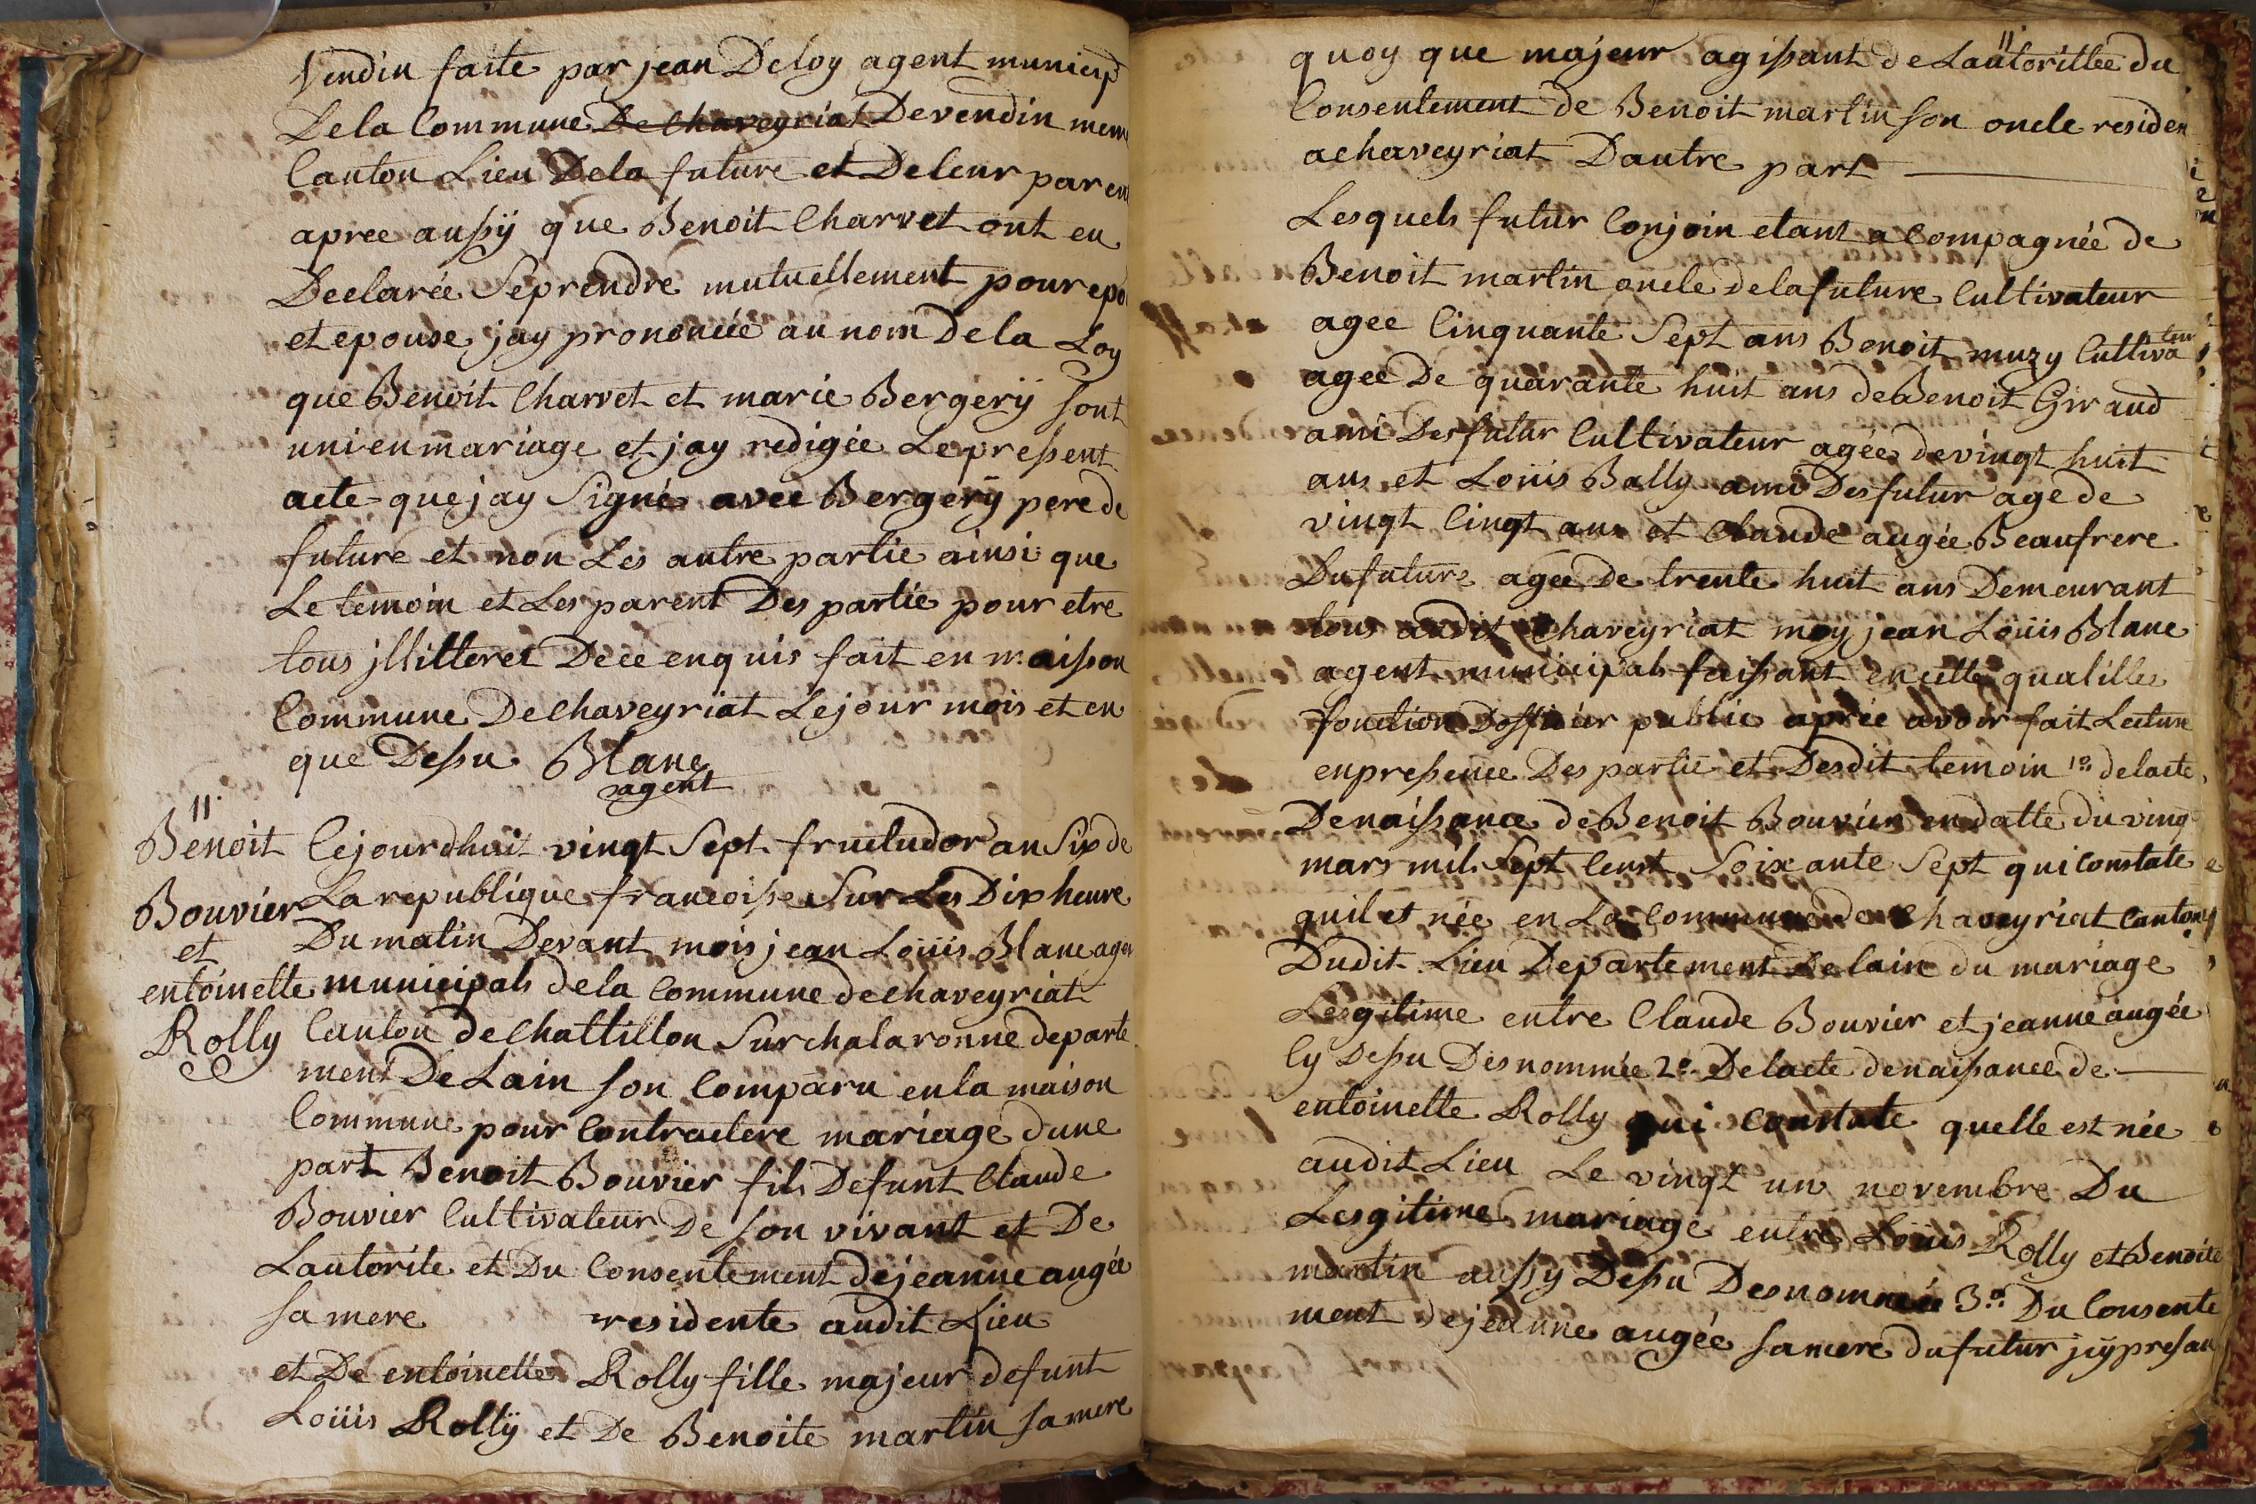 Vendin faite par jean Deloy agent municip
De la Commune De chaveyriat De vendin mem
Canton Lieu Dela future et De leur paren
apree aussÿ que Benoit Charvet ont eu
Declarée Seprendre mutuellement pour epo
et epouse jay prononcée au nom De la Loy
que Benoit Charvet et marie Bergerÿ sont
uni en mariage et jay redigée Le present
acte que jay Signé avec Bergerÿ pere de
future et non Les autre partie ainsi que
Le temoin et Les parent Des partie pour etre
tous jlliteret De ce enquis fait en maison
Commune De chaveyriat Le jour mois et en
que Dessu Blanc
agent
11
Benoit
Bouvier
et
entoinette
Rolly
Cejourdhuit vingt Sept fructudor an Six de
La republique francoise Sur Les Dix heure
Du matin Devant mois jean Loüis Blanc agen
municipals dela Commune de chaveyriat
Canton de Chattillon Sur chalaronne departe
ment De Lain son Comparu en la maison
Commune pour Contractere mariage dune
part Benoit Bouvier fils Defunt Claude
Bouvier Cultivateur De son vivant et De
Lautorite et Du Consentement de jeanne augée
sa mere residente audit Lieu
et De entoinette Rolly fille majeur defunt
Loüis Rollÿ et De Benoite martin sa mere
11
quoy que majeur agissant de Lautorittée du
Consentement de Benoit martin son oncle residen
a chaveyriat Dautre part
Lesquels futur Conjoin etant acompagnée de
Benoit martin oncle dela future Cultivateur
agee Cinquante Sept ans Benoit muzy Cultivateur
agee De quarante huit ans de Benoit Giraud
ami Des futur Cultivateur agée de vingt huit
ans et Loüis Bally ami Des futur age de
vingt Cinqt ans et Claude augée Beaufrere
Du future agee De trente huit ans Demeurant
tous audit Chaveyriat moy jean Loüis Blanc
agent municipals faissant en cette qualitte
fonction Dofficier public apree avoir fait Lecture
en presence Des partie et Desdit temoin 1o. de lacte
De naissance de Benoit Bouvier en datte du ving
mars mil Sept Cent Soixante Sept qui Constate
quil et née en La Commune de Chaveyriat Canton
Dudit Lieu Departement De lain du mariage
Lesgitime entre Claude Bouvier et jeanne augée
Cy Dessu Desnommée 2o. De lacte de naissance de
entoinette Rolly qui Constate quelle est née
audit Lieu Le vingt un novembre Du
Lesgitime mariage entre Loüis Rolly et Benoite
martin aussy Dessu Desnommée 3o. Du Consente
ment de jeanne augée sa mere du futur jcÿ presan